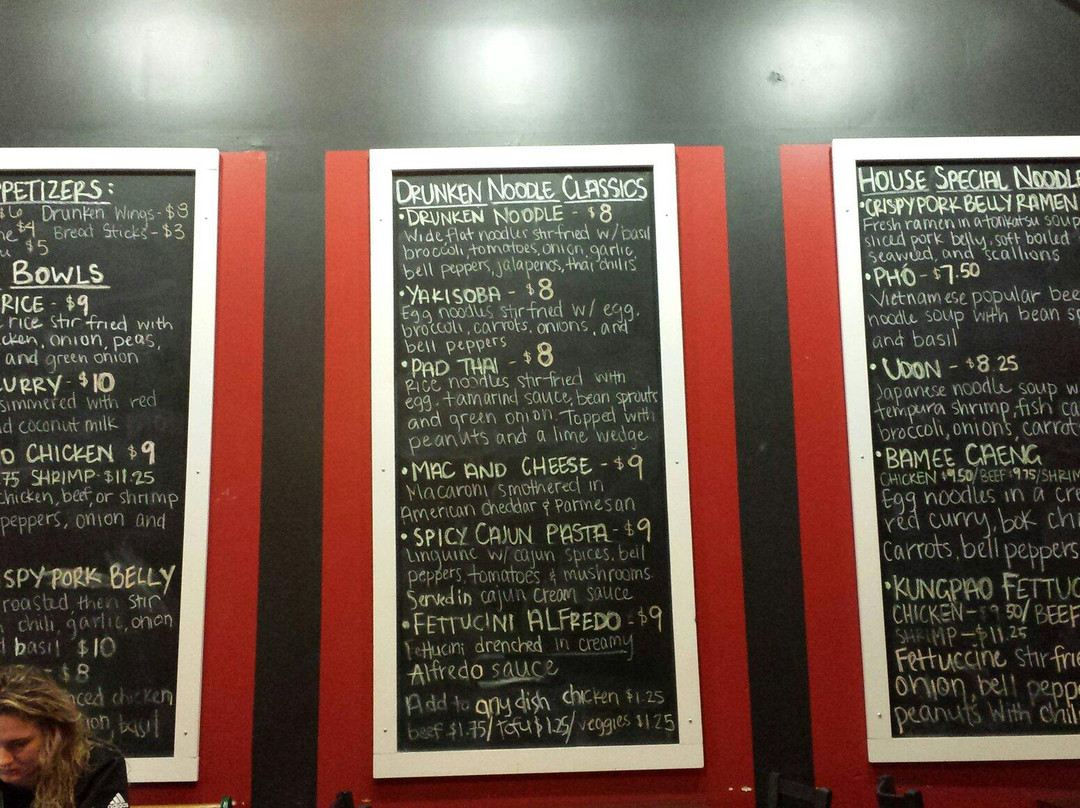 PPETIZERS:
$6 Drunken Wings-$8
$4 Bread Sticks-$3
$5
BOWLS
RICE - $9
rice stir fried with
cken, onion, peas,
and green onion
URRY - $10
simmered with red
d coconut milk
O CHICKEN $9
75 SHRIMP-$11.25
chicken, beef, or shrimp
peppers, onion and
SPY PORK BELLY
roasted then stir
chili, garlic, onion
basil $10
- $8
ced chicken
ion, basil
DRUNKEN NOODLE CLASSICS
•DRUNKEN NOODLE - $8
Wide, flat noodles stirfried w/ basil
broccoli, tomatoes, onion, garlic
bell peppers, jalapenos, thai chilis
•YAKISOBA - $8
Egg noodles stirfried w/ egg,
broccoli, carrots, onions, and
bell peppers
•PAD THAI - $8
Rice noodles stir-fried with
egg, tamarind sauce, bean sprouts
and green onion. Topped with
peanuts and a lime wedge
•MAC AND CHEESE - $9
Macaroni smothered in
American cheddar & parmesan
•SPICY CAJUN PASTA - $9
Linguine w/ cajun spices, bell
peppers, tomatoes & mushrooms
Served in cajun cream sauce
•FETTUCINI ALFREDO - $9
Fettucini drenched in creamy
Alfredo sauce
Add to any dish chicken $1.25
beef $1.75/ tofu $1.25/ veggies $1.25
HOUSE SPECIAL NOODLE
•CRISPY PORK BELLY RAMEN
Fresh ramen in a tonkatsu soup
sliced pork belly, soft boiled
seaweed, and scallions
•PHO - $7.50
Vietnamese popular bee
noodle soup with bean sp
and basil
•UDON - $8.25
Japanese noodle soup w
tempura shrimp, fish ca
broccoli, onions, carrot
•BAMEE CAENG
CHICKEN $9.50/BEEF $9.75/SHRIM
Egg noodles in a cre
red curry, bok chi
carrots, bell peppers
•KUNGPAO FETTUC
CHICKEN-$9.50/BEEF
SHRIMP-$11.25
Fettuccine stirfrie
onion, bell pepp
peanuts with chil
adidas